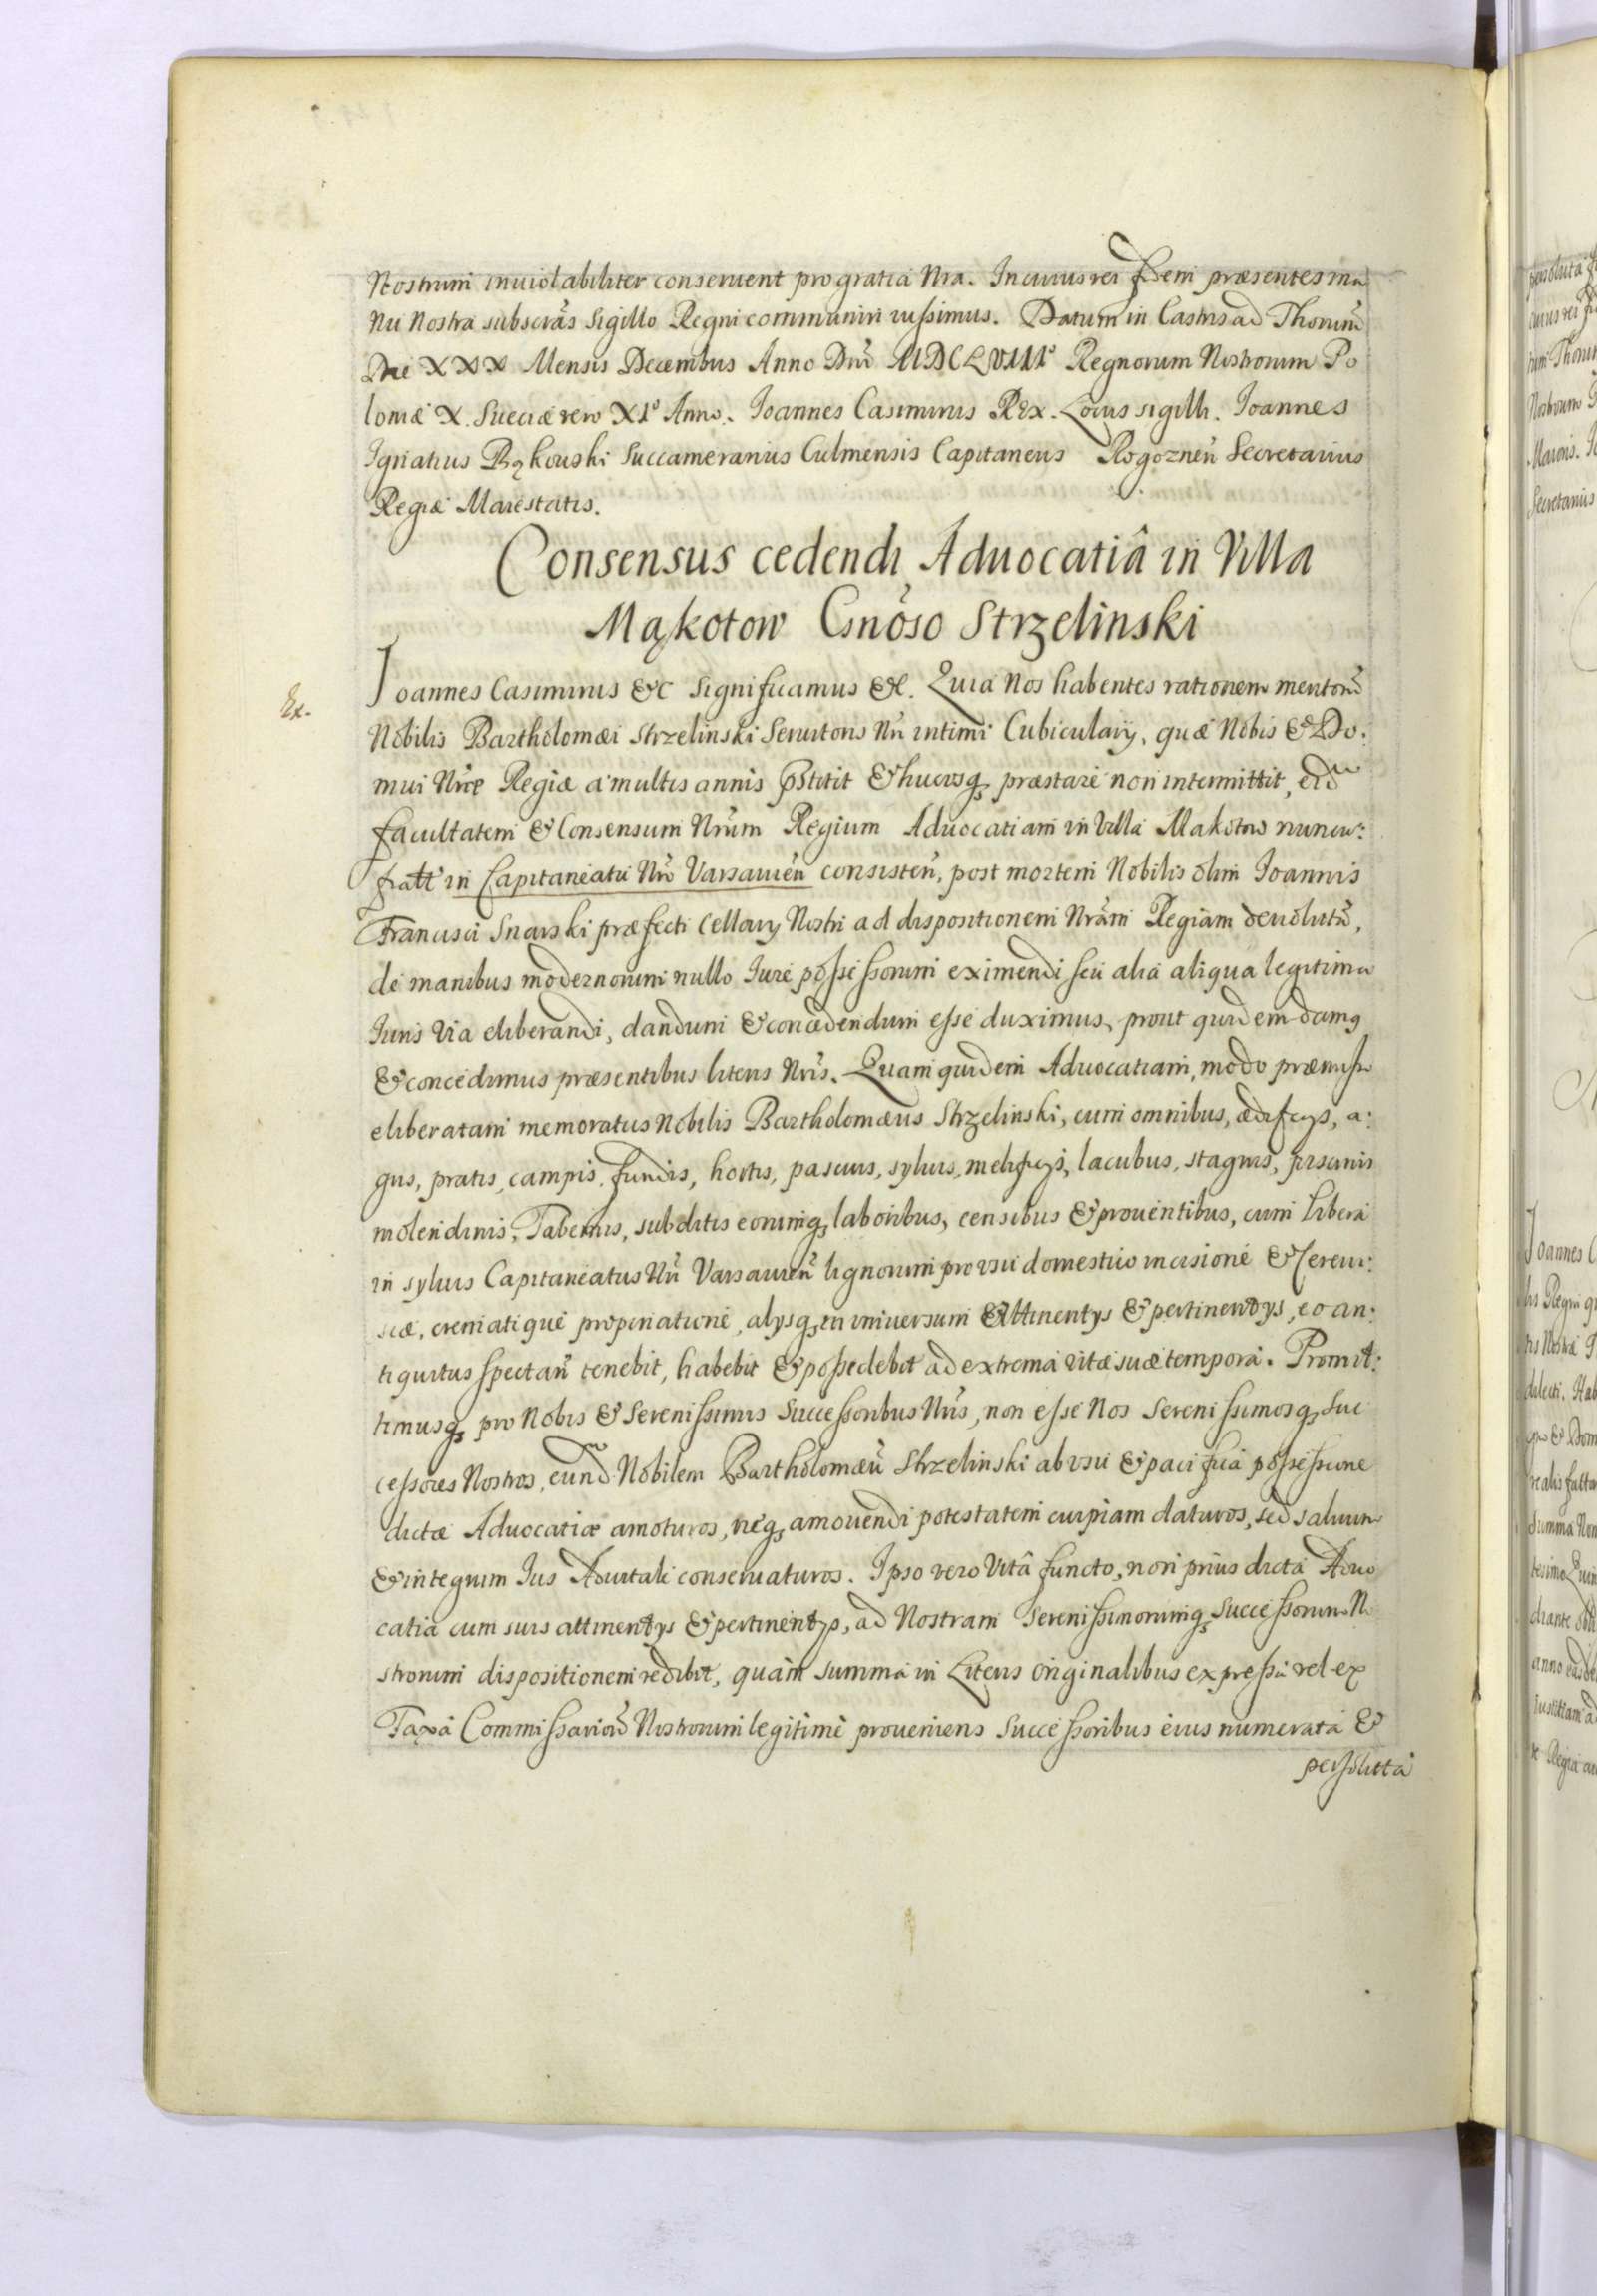 Nostrum inuiolabiliter conseruent pro gratia Nra. In cuius rei fidem præsentes ma
nu Nostra subscrãs Sigillo Regni communiri iussimus. Datum in Castris ad Thoruniũ
Die XXX Mensis Decembris Anno Dni MDCLVIIIº Regnorum Nostrorum Po
loniæ X. Sueciæ vero XIº Anno. Joannes Casimirus REx. Locus sigilli. Joannes
Ignatius Bąkouski Succamerarius Culmensis Capitaneus Rogoznen̄ Secretarius
Regiæ Maiestatis.
Consensus cedendi Aduocatiâ in Villa
Mąkotow Gnoso Strzelinski
Ex.
Joannes Casimirus &c Significamus &c. Quia Nos habentes rationem meritorũ
Nobilis Bartholomæi Strzelinski Seruitoris Nri intimi Cubicularij, quæ Nobis & Do:
mui Nræ Regiæ a multis annis p̄stitit & hucusq3 præstare non intermittit, eidem
facultatem & Consensum Nrum Regium Aduocatiam in Villa Makotow nuncu:
patã in Capitaneatu Nro Varsauien̄ consisten̄, post mortem Nobilis olim Joannis
Francisci Snarski præfecti Cellarij Nostri ad dispositionem Nrãm Regiam deuolutã,
de manibus modernorum nullo Jure possessorum eximendi seu alia aliqua legitima
Juris via eliberandi, dandum & concedendum esse duximus, prout quidem damq
& concedimus præsentibus literis Nris. Quam quidem Aduocatiam, modo præmisso
eliberatam memoratus Nobilis Bartholomæus Strzelinski, cum omnibus, ædificijs, a:
gris, pratis, campis, fundis, hortis, pascuis, syluis, melificijs, lacubus, stagnis, piscinis
molendinis, Tabernis, subditis eorumq3 laboribus, censibus & prouentibus, cum libera
in syluis Capitaneatus Nri Varsauien̄ lignorum pro vsu domestico incisione & Cereui:
siæ, crematique propinatione, alysq3 in vniuersum Attinentys & pertinentys, eo an:
tiquitus spectan̄ tenebit, habebit & possedebit ad extrema vitæ suæ tempora. Promit:
timusq3 pro Nobis & Serenissimis Successoribus Nris, non esse Nos Serenissimosq3 Suc
cessores Nostros, eund̃ Nobilem Bartholomæũ Strzelinski ab vsu & pacifica possessione
dictæ Aduocatiæ amoturos, neq3 amouendi potestatem cuipiam daturos, sed saluum
& integrum Jus Aduitale conseruaturos. Ipso vero Vitâ functo, non prius dicta Aduo
catia cum suis attinentys & pertinentys, ad Nostram Serenissimorumq3 Successorum No
strorum dispositionem redibit, quàm summa in Literis originalibus expressa vel ex
Taxâ Commissariorũ Nostrorum legitimè proueniens Successoribus eius numerata &
persoluta